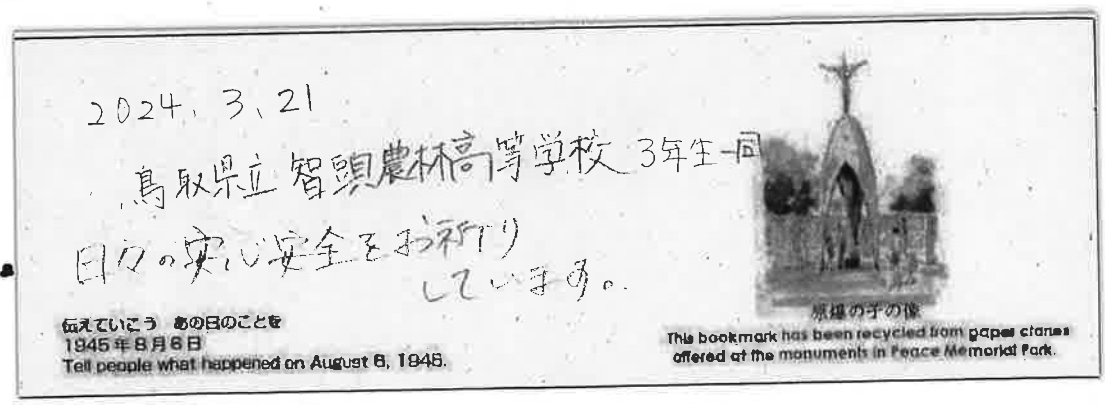 2024. 3. 21
鳥取県立智頭農林高等学校 3年生一同
日々の安心安全をお祈り
しています。
伝えていこう あの日のことを
1945年8月6日
Tell people what happened on August 6, 1945.
原爆の子の像
This bookmark has been recycled from paper cranes
offered at the monuments in Peace Memorial Park.